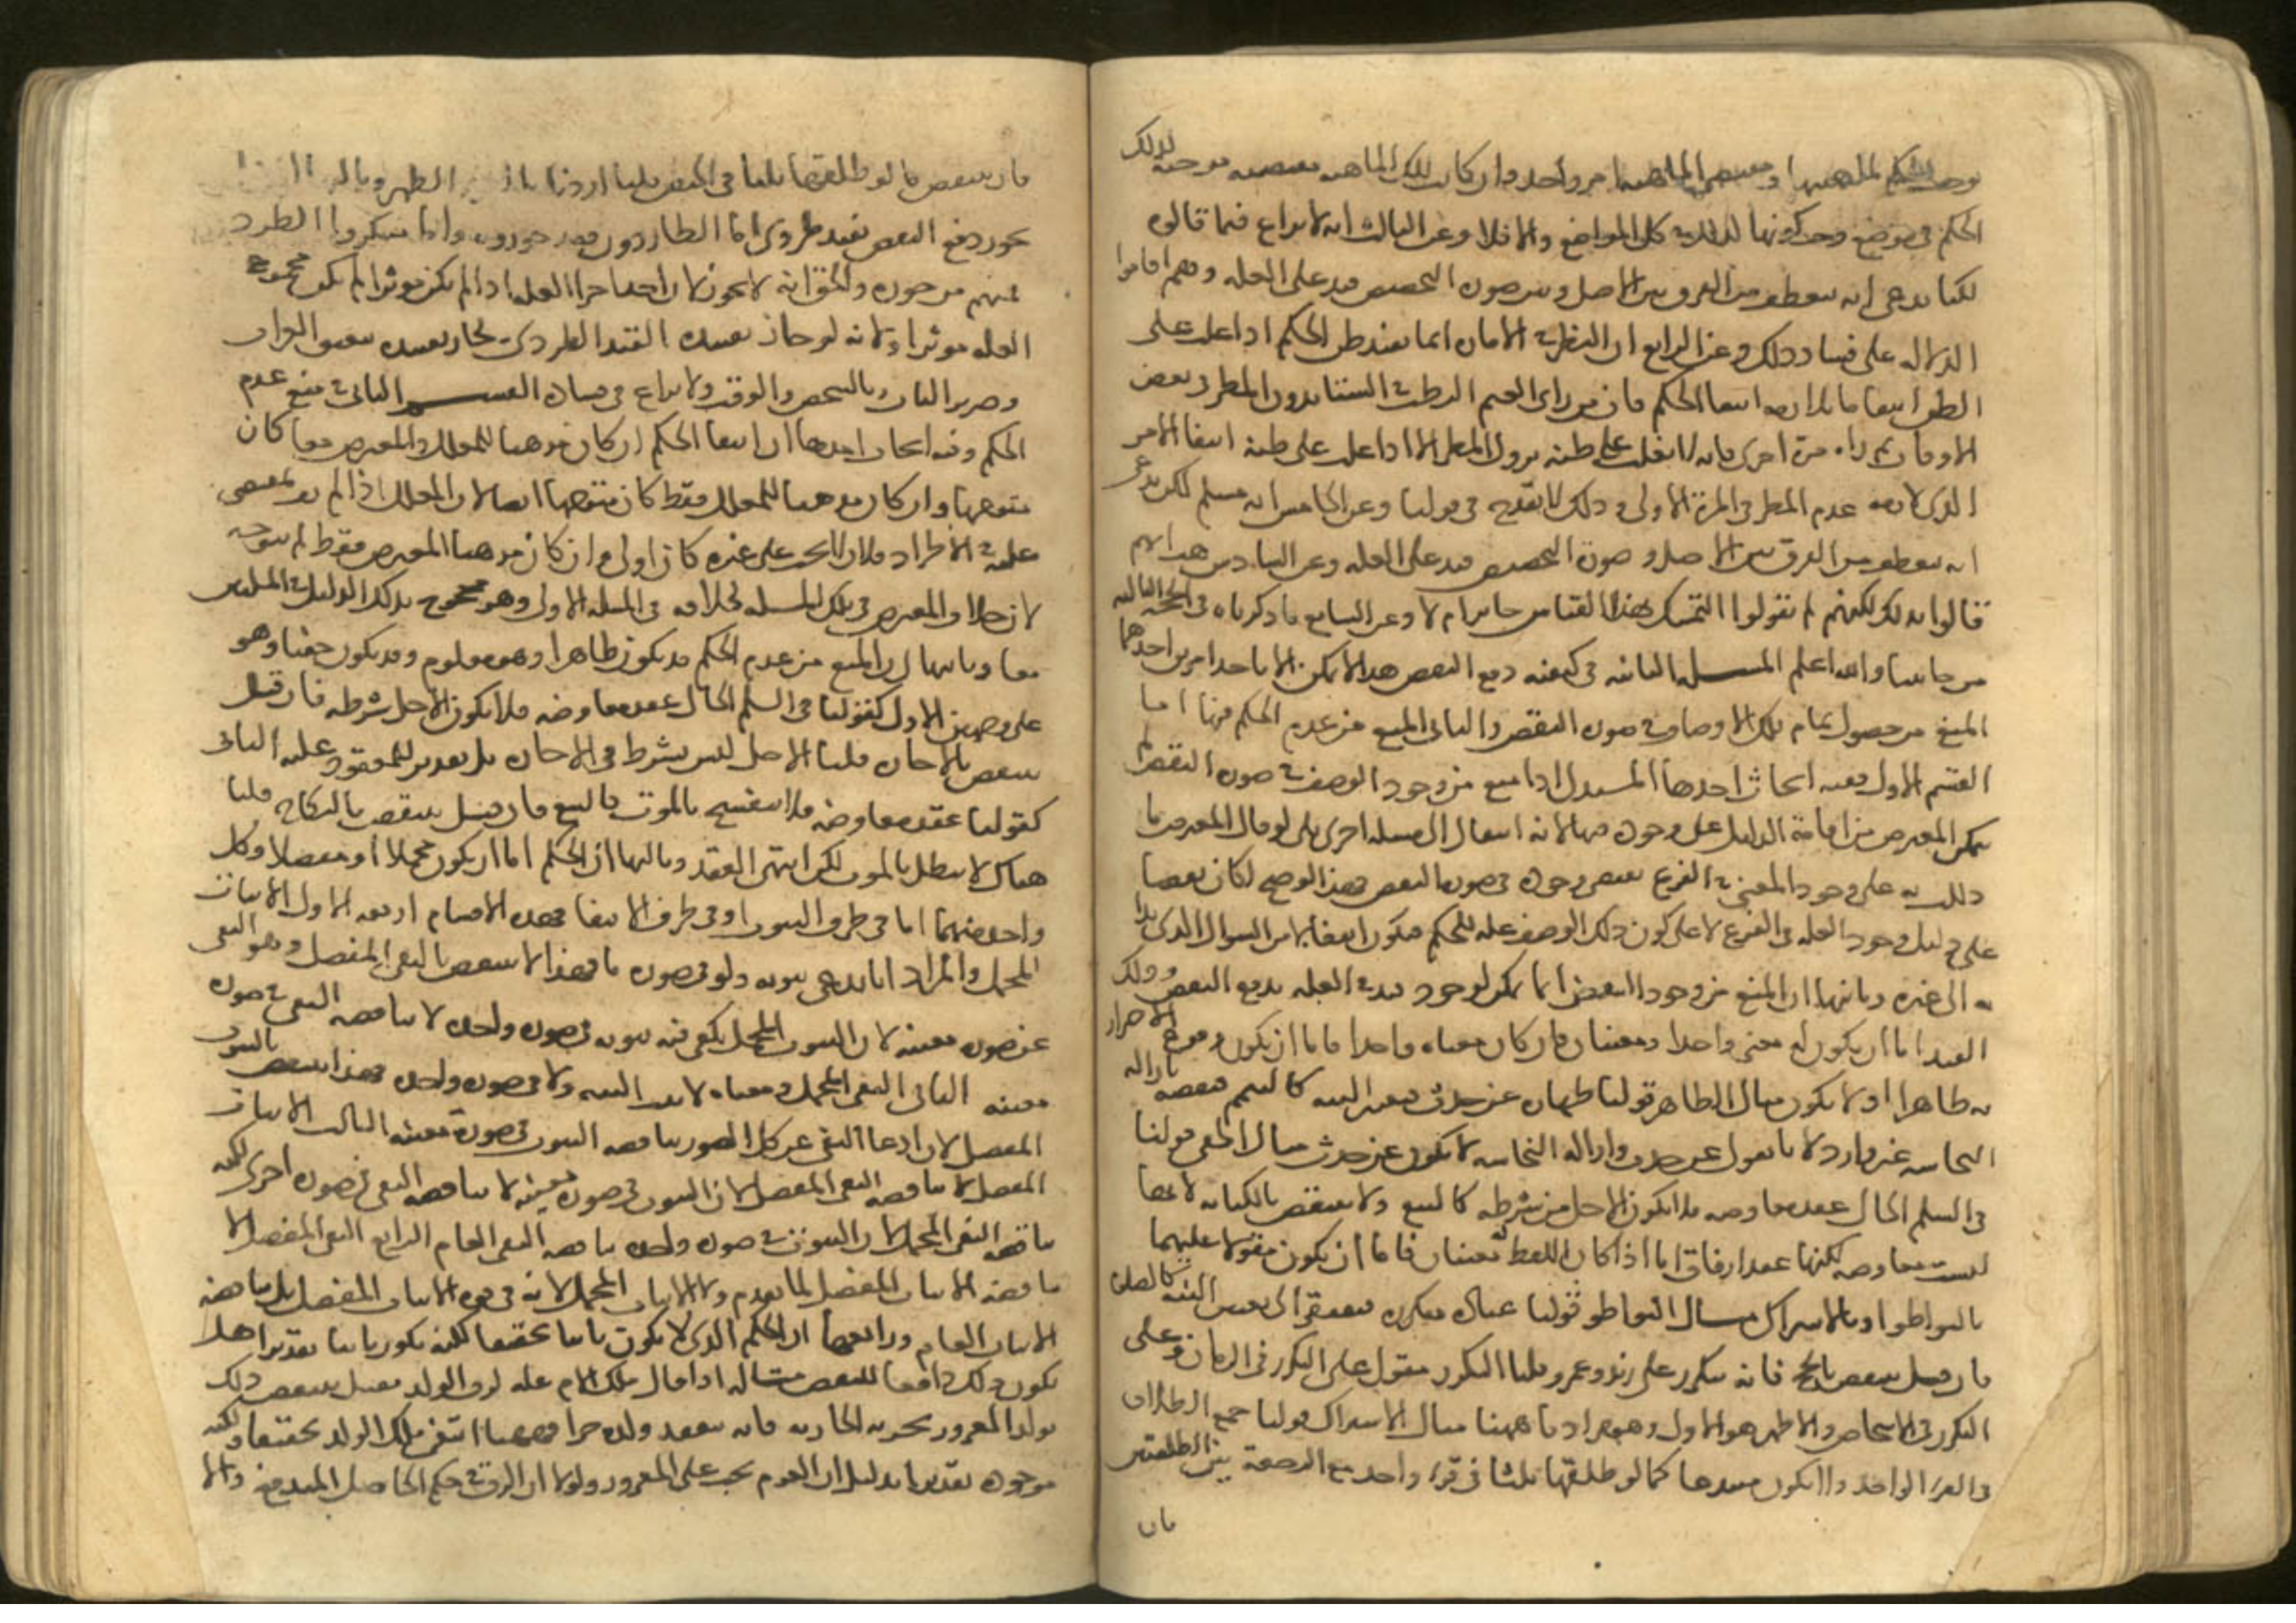 الحكم في موضع وجب كونها كذلك في كل المواضع والا فلا وعن الثالث انه لا نزاع فيما قالوه
لكنا ندعي انه ينعطف من الفرق بين الاصل وبين صورة التخصيص قيد على العلة وهم اقاموا
الدلالة على فساد ذلك وعن الرابع ان النظر في الامارة انما يفيد ظن الحكم اذا غلب على
الظن انتفاء ما يلازمه انتفاء الحكم فان من راى الغيم الرطب في الشتاء بدون المطر في بعض
الاوقات ثم راه مرة اخرى فانه لا يغلب على ظنه نزول المطر الا اذا غلب على ظنه انتفاء الامر
الذي لازمه عدم المطر في المرة الاولى وذلك لا يقدح في قولنا وعن الخامس انه مسلم لكن ندعي
انه ينعطف من الفرق بين الاصل وصورة التخصيص قيد على العلة وعن السادس هب انهم
قالوا بذلك لكنهم لم يقولوا التمسك بهذا القياس جائز ام لا وعن السابع ما ذكرناه في الحجة الثالثة
من جانبنا والله اعلم المسلة الثانية في كيفية دفع النقض هذا لا يمكن الا باحد امرين احدهما
المنع من حصول تمام تلك الاوصاف في صورة النقض والثاني المنع من عدم الحكم فيها اما
القسم الاول ففيه ابحاث احدها المستدل اذا منع من وجود الوصف في صورة النقض لم
يمكن المعترض من اقامة الدليل على وجوده فيها لانه انتقال الى مسلة اخرى بلى لو قال المعترض ما
دللت به على وجود المعنى في الفرع يقتضي وجوده في صورة النقض فهذا لو صح لكان نقضا
على دليل وجود العلة في الفرع لا على كون ذلك الوصف علة للحكم فيكون انتقالا من السوال الذي بدا
به الى غيره وثانيها ان المنع من وجود النقض انما يمكن لوجود قيد في العلة يدفع النقض وذلك
القيد اما ان يكون له معنى واحد او معنيان فان كان معناه واحدا فاما ان يكون وقوع الاحتراز
به ظاهرا او لا يكون مثال الظاهر قولنا طهارة عن حدث فتفتقر الى النية كالتيمم فنقضه بازالة
النجاسة غير وارد لانا نقول عن حدث وازالة النجاسة لا تكون عن حدث مثال الخفي قولنا
في السلم الحال عقد معاوضة فلا يكون الاجل من شرطه كالبيع ولا ينتقض بالكتابة لانها
ليست معاوضة لكنها عقد ارفاق اما اذا كان اللفظ له معنيان فاما ان يكون مقولا عليهما
بالتواطو او بالاشتراك مثال التواطو قولنا عبادة متكررة فتفتقر الى تعيين النية كالصلاة
فان قيل ينتقض بالحج فانه يتكرر على زيد وعمرو قلنا التكرر مقول على التكرر في الازمان وعلى
التكرر في الاشخاص والاظهر هو الاول وهو مرادنا ههنا مثال الاشتراك قولنا جمع الطلاق
في القرء الواحد فلا يكون مبتدعا كما لو طلقها ثلثا في قرء واحد مع الرجعة بين الطلقتين
فان
فان ينتقض بما لو طلقها ثلثا في الحيض قلنا اردنا بالقرء الطهر
يجوز دفع النقض بقيد طردي اما الطاردون فقد جوزوه واما منكروا الطرد
فمنهم من جوزه والحق انه لا يجوز لان احد اجزاء العلة اذا لم يكن موثرا لم يكن مجموع
العلة موثرا ولانه لو جاز تقييده بالقيد الطردي لجاز تقييده بنعيق الغراب
وصرير الباب وبالشخص والوقت ولا نزاع في فساده القسم الثاني في منع عدم
الحكم وفيه ابحاث احدها ان انتفاء الحكم ان كان مذهبا للمعلل والمعترض معا كان
متوجها وان كان مذهبا للمعلل فقط كان متوجها ايضا لان المعلل اذا لم يف بمقتضى
علته في الاطراد فلان لا يجب على غيره كان اولى وان كان مذهبا للمعترض فقط لم يتوجه
لان خلاف المعترض في تلك المسلة كخلافه في المسلة الاولى وهو محجوج بذلك الدليل في المسلتين
معا وثانيها ان المنع من عدم الحكم قد يكون ظاهرا وهو معلوم وقد يكون خفيا وهو
على وجهين الاول كقولنا في السلم الحال عقد معاوضة فلا يكون الاجل شرطه فان قيل
ينتقض بالاجارة قلنا الاجل ليس بشرط في الاجارة بل تقدير للمعقود عليه الثاني
كقولنا عقد معاوضة فلا ينفسخ بالموت كالبيع فان قيل ينتقض بالنكاح قلنا
هناك لا يبطل بالموت لكن انتهى العقد وثالثها ان الحكم اما ان يكون مجملا او مفصلا وكل
واحد منهما اما في طرف الثبوت او في طرف الانتفاء فهذه الاقسام اربعة الاول الاثبات
المجمل والمراد انا ندعي ثبوته ولو في صورة ما فهذا لا ينتقض بالنفي المفصل وهو النفي
عن صورة معينة لان الثبوت المجمل يكفي فيه ثبوته في صورة واحدة فلا يناقضه النفي في صورة
معينة الثاني النفي المجمل ومعناه لا يثبت البتة ولا في صورة واحدة فهذا ينتقض بالثبوت
المفصل لان ادعاء النفي عن كل الصور يناقضه الثبوت في صورة معينة الثالث الاثبات
المفصل لا يناقضه النفي المفصل لان الثبوت في صورة معينة لا يناقضه النفي في صورة اخرى لكنه
يناقضه النفي المجمل لان الثبوت في صورة واحدة يناقضه النفي العام الرابع النفي المفصل لا
يناقضه الاثبات المفصل لما تقدم ولا الاثبات المجمل لانه في قوة الاثبات المفصل بل يناقضه
الاثبات العام ورابعها ان الحكم الذي لا يكون ثابتا تحقيقا لكنه يكون ثابتا تقديرا هل
يكون ذلك دافعا للنقض مثاله اذا قال ملك الام علة لرق الولد فقيل ينتقض ذلك
بولد المغرور بحرية الجارية فانه ينعقد ولده حرا فههنا انتفى ملك الولد تحقيقا ولكنه
موجود تقديرا بدليل ان الغرم يجب على المغرور ولولا ان الرق في حكم الحاصل المندفع والا